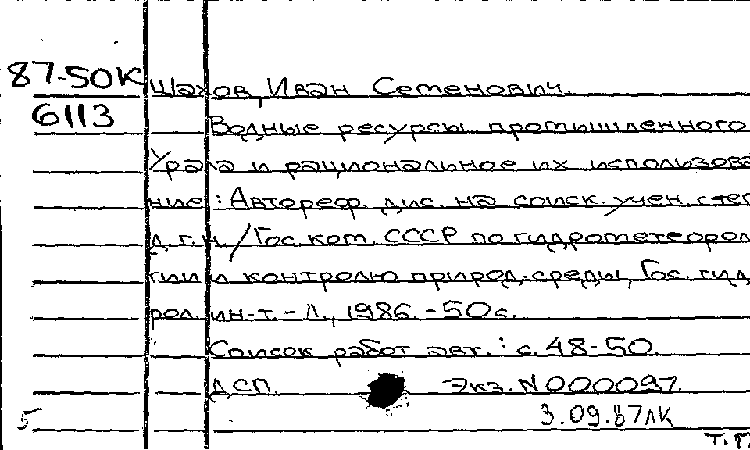 87-50К Шахов, Иван Семенович.
6113 Водные ресурсы промышленного
Урала и рациональное их использова
ние : Автореф. дис. на соиск. учен. степ
д.г.н. / Гос. ком. СССР по гидрометеорол
гии и контролю природ. среды, Гос. гид
рол. ин-т. - Л., 1986. - 50 с.
Список работ авт. : с. 48-50.
ДСП. Экз. N 000097.
3.09.87 ЛК
5